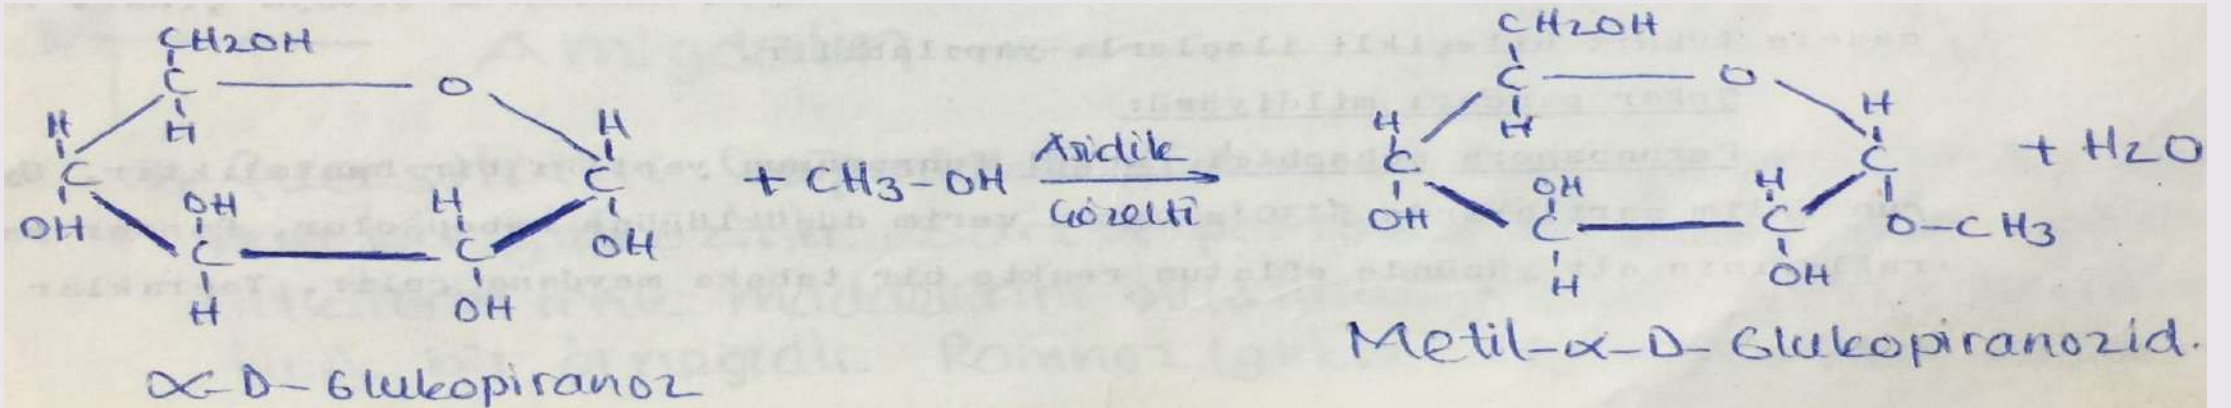 CH2OH
C O
H H H
C C
OH OH H OH
C C
H OH
α-D-Glukopiranoz
+ CH3-OH
Asidik
Gözelti
CH2OH
C O
H H H
C C
OH OH H O-CH3
C C
H OH
Metil-α-D-Glukopiranozid.
+ H2O